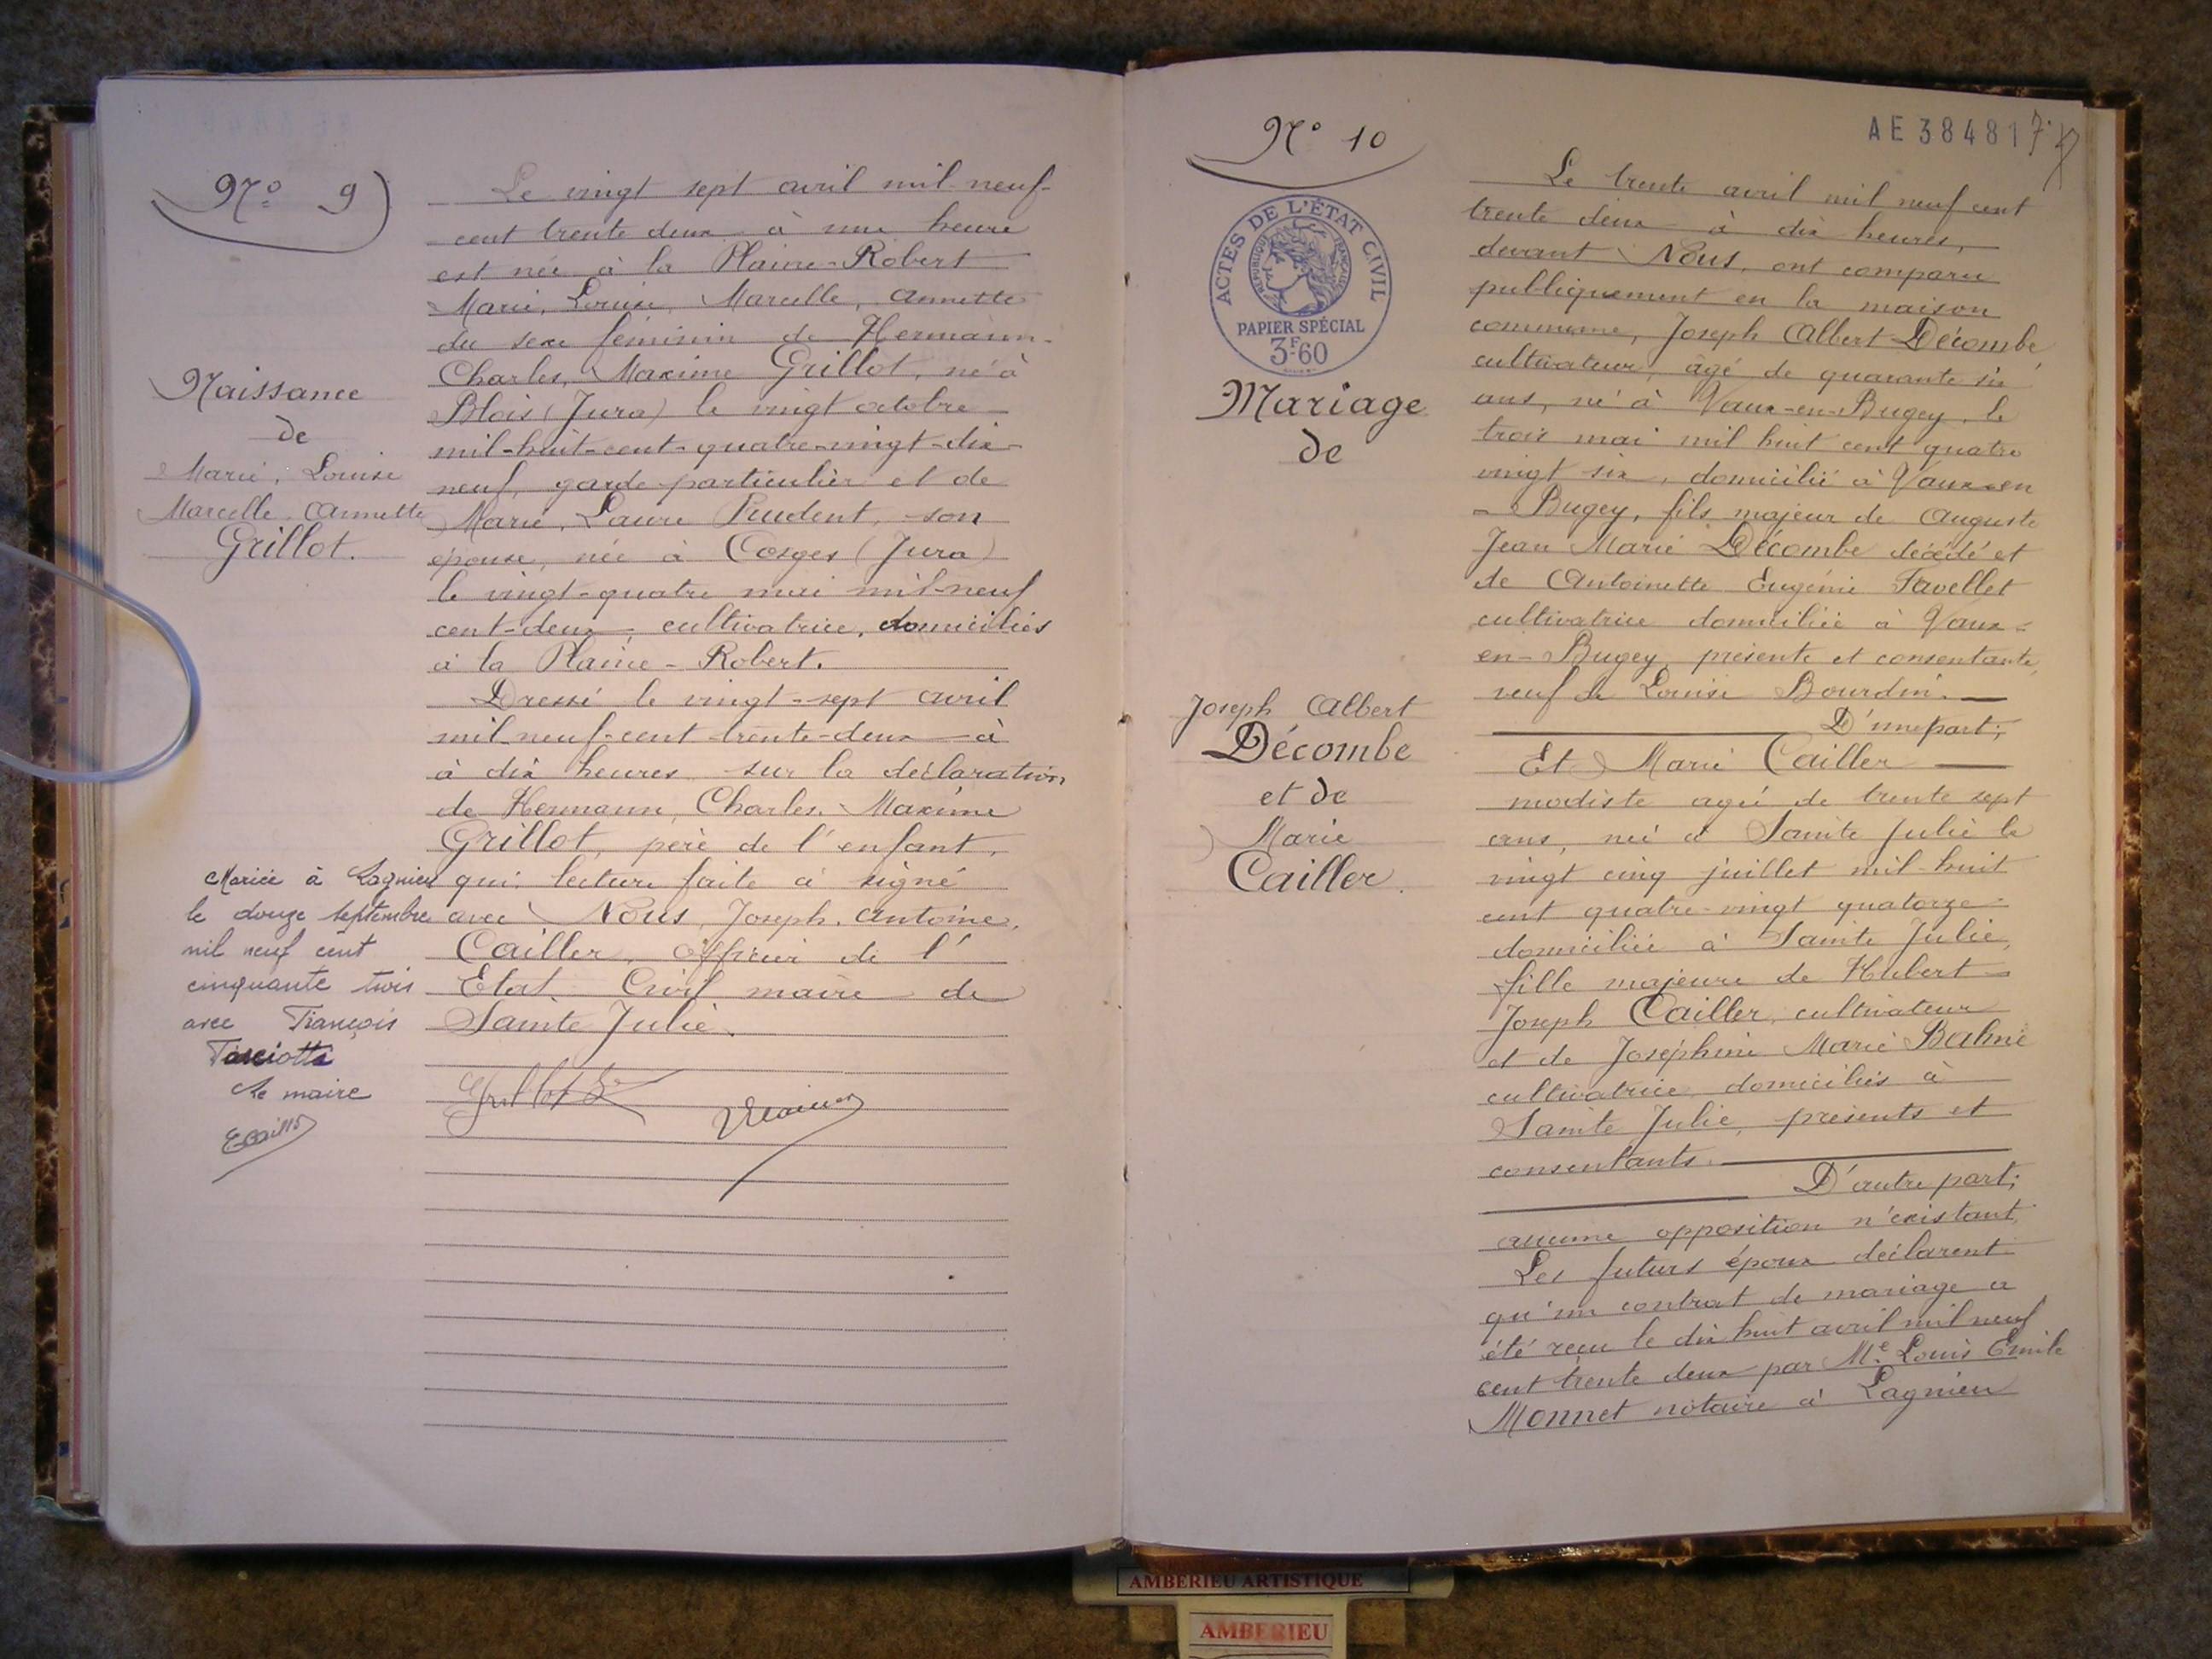 N° 9
Naissance
de
Marie, Louise
Marcelle, Annette
Grillot.
Mariée à Lagnieu
le douze septembre
mil neuf cent
cinquante trois
avec François
Le maire
Le vingt sept avril mil-neuf-
cent trente deux à une heure
est née à la Plaine-Robert
Marie, Louise, Marcelle, Annette
du sexe féminin de Hermann-
Charles, Maxime Grillot, né à
Blois (Jura) le vingt octobre
mil-huit-cent-quatre-vingt-dix-
neuf, garde-particulier et de
Marie, Laure Prudent, son
épouse, née à Cosges (Jura)
le vingt-quatre mai mil-neuf
cent-deux, cultivatrice, domiciliés
à la Plaine-Robert.
Dressé le vingt-sept avril
mil-neuf-cent-trente-deux à
à dix heures sur la déclaration
de Hermann, Charles, Maxime
Grillot, père de l'enfant,
qui, lecture faite a signé
avec Nous, Joseph, Antoine,
Cailler, Officier de l'
Etat Civil maire de
Sainte Julie.
Grillot
N° 10
ACTES DE L'ÉTAT CIVIL
RÉPUBLIQUE FRANÇAISE
PAPIER SPÉCIAL
3F60
Mariage
de
Joseph Albert
Décombe
et de
Marie
Cailler.
AE 384817
Le trente avril mil neuf cent
trente deux à dix heures,
devant Nous, ont comparu
publiquement en la maison
commune, Joseph Albert Décombe
cultivateur, âgé de quarante six
ans, né à Vaux-en-Bugey, le
trois mai mil huit cent quatre
vingt six, domicilié à Vaux-en
-Bugey, fils majeur de Auguste
Jean Marie Décombe décédé et
de Antoinette Eugénie Favellet
cultivatrice domiciliée à Vaux-
en-Bugey, présente et consentante,
veuf de Louise Bourdin.
D'une part;
Et Marie Cailler
modiste agée de trente sept
ans, née à Sainte Julie le
vingt cinq juillet mil-huit
cent quatre-vingt quatorze
domiciliée à Sainte Julie,
fille majeure de Hubert
Joseph Cailler, cultivateur
et de Joséphine Marie Balme
cultivatrice domiciliés à
Sainte Julie, présents et
consentants.
D'autre part;
aucune opposition n'existant,
Les futurs époux déclarent
qu'un contrat de mariage a
été reçu le dix huit avril mil neuf
cent trente deux par Me Louis Emile
Monnet notaire à Lagnieu
AMBERIEU ARTISTIQUE
AMBERIEU